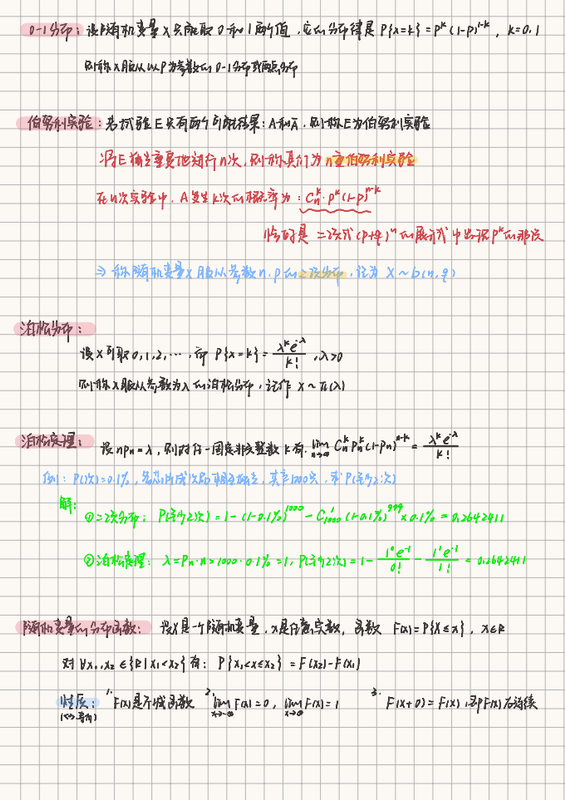 0-1分布：设随机变量X只能取0和1两个值，它的分布律是P{X=k}=p^k(1-p)^{1-k}，k=0.1
则称X服从以P为参数的0-1分布或两点分布
伯努利实验：若试验E只有两个可能结果：A和Ā，则称E为伯努利实验
将E独立重复地进行n次，则称其们为n重伯努利实验
在n次实验中，A发生k次的概率为：C_n^k·p^k(1-p)^{n-k}
恰好是二次式(p+q)^n的展开式中出现p^k的那次
⇒称随机变量X服从参数n.p的二次分布，记为X～b(n,q)
泊松分布：
设X可取0,1,2,…,而P{X=k}=\frac{λ^k e^{-λ}}{k!}，λ>0
则称X服从参数为λ的泊松分布，记作X～π(λ)
泊松定理：设npn=λ，则对任一固定非负整数k有 lim_{n→∞} C_n^k p_n^k(1-p_n)^{n-k}=\frac{λ^k e^{-λ}}{k!}
例：P(次)=0.1%，各产品成次品相互独立，其产1000只，求P(至少2次)
解：①二次分布：P(至少2次)=1-(1-0.1%)^{1000}-C_{1000}^1(1-0.1%)^{999}×0.1%=0.2642411
②泊松定理：λ=Pn·n=1000·0.1%=1，P(至少2次)=1-\frac{1^0e^{-1}}{0!}-\frac{1^1e^{-1}}{1!}=0.2642411
随机变量的分布函数：设X是一个随机变量，x是任意实数，函数 F(x)=P{X≤x}，x∈R
对∀x₁,x₂∈{R|x₁<x₂}有：P{x₁<x≤x₂}=F(x₂)-F(x₁)
性质：1. F(x)是不减函数 2. lim_{x→-∞}F(x)=0，lim_{x→∞}F(x)=1 3. F(x+0)=F(x)，即F(x)右连续